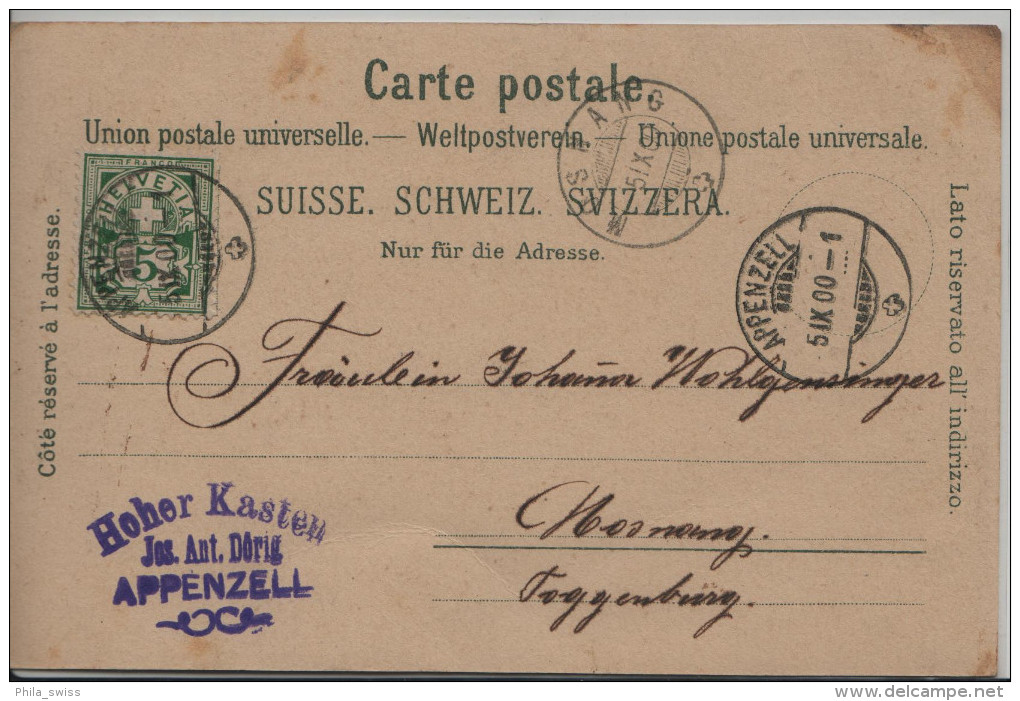 Carte postale.
Union postale universelle. — Weltpostverein — Unione postale universale.
SUISSE. SCHWEIZ. SVIZZERA.
Nur für die Adresse.
Côté réservé à l'adresse.
Lato riservato all' indirizzo.
FRANCO
HELVETIA
5
APPENZELL
MOSNANG
5 IX
APPENZELL
5 IX 00 – 1
Fräulein Johanna Wohlgensinger
Mosnang.
Toggenburg.
Hoher Kasten
Jos. Ant. Dörig
APPENZELL
Phila_swiss
www.delcampe.net